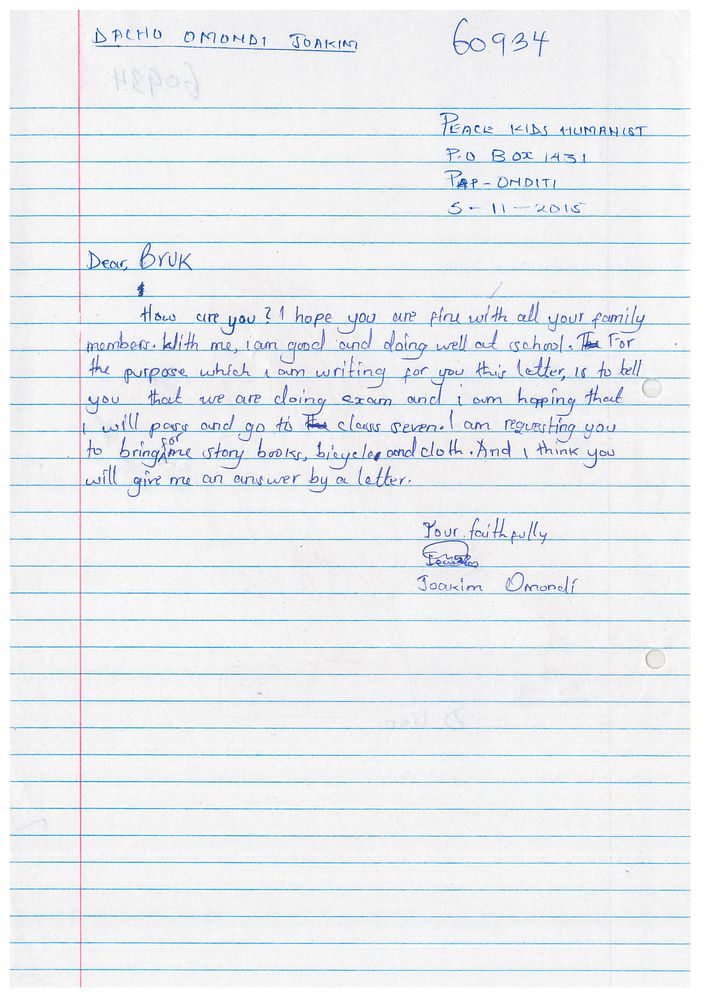 DACHO OMONDI JOAKIM
60934
PEACE KIDS HUMANIST
P.O BOX 1431
PAP-ONDITI
5-11-2015
Dear, BRUK
How are you? I hope you are fine with all your family
members. With me, i am good and doing well at school. For
the purpose which i am writing for you this letter, is to tell
you that we are doing exam and i am hopping that
i will pass and go to class seven. I am requesting you
to bring for me story books, bicycle, and cloth. And i think you
will give me an answer by a letter.
Your faithfully
Joakim Omondi